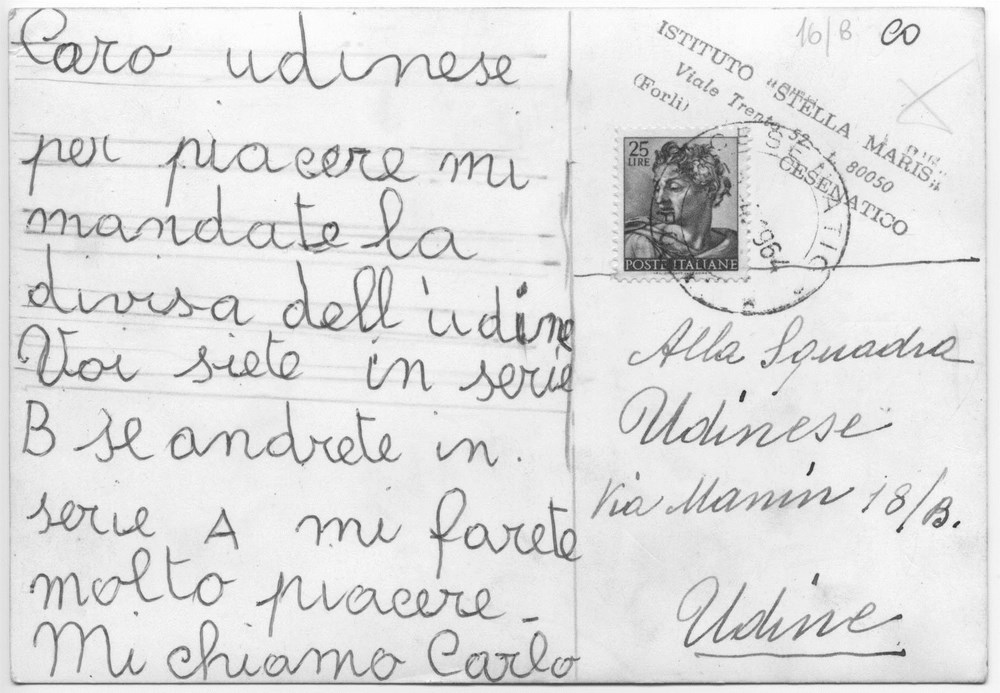 Caro udinese
per piacere mi
mandate la
divisa dell'udine
Voi siete in serie
B se andrete in
serie A mi farete
molto piacere -
Mi chiamo Carlo
16/B CO
ISTITUTO "STELLA MARIS"
Viale Trento, 52 - 80050
(Forlì) CESENATICO
25
LIRE
POSTE ITALIANE
1964
Alla Squadra
Udinese
Via Manin 18/B.
Udine